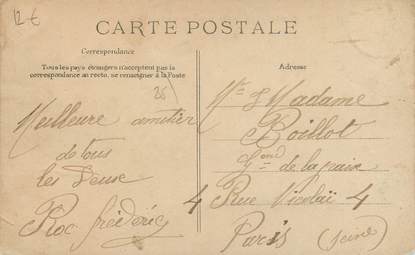 12 €
CARTE POSTALE
Correspondance
Tous les pays étrangers n'acceptent pas la
correspondance au recto, se renseigner à la Poste
26
Meilleure amitier
de tous
les Deux
Roc frédéric
Adresse
Mr & Madame
Boillot
de la paix
4 Rue Nicolaï 4
Paris (Seine)